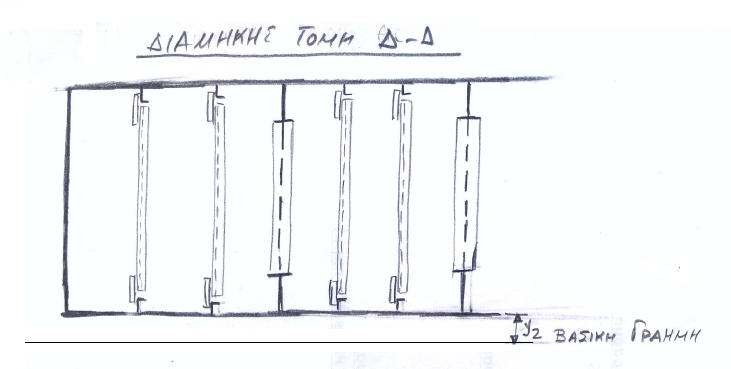 ΔΙΑΜΗΚΗΣ ΤΟΜΗ Δ-Δ
y2 ΒΑΣΙΚΗ ΓΡΑΜΜΗ